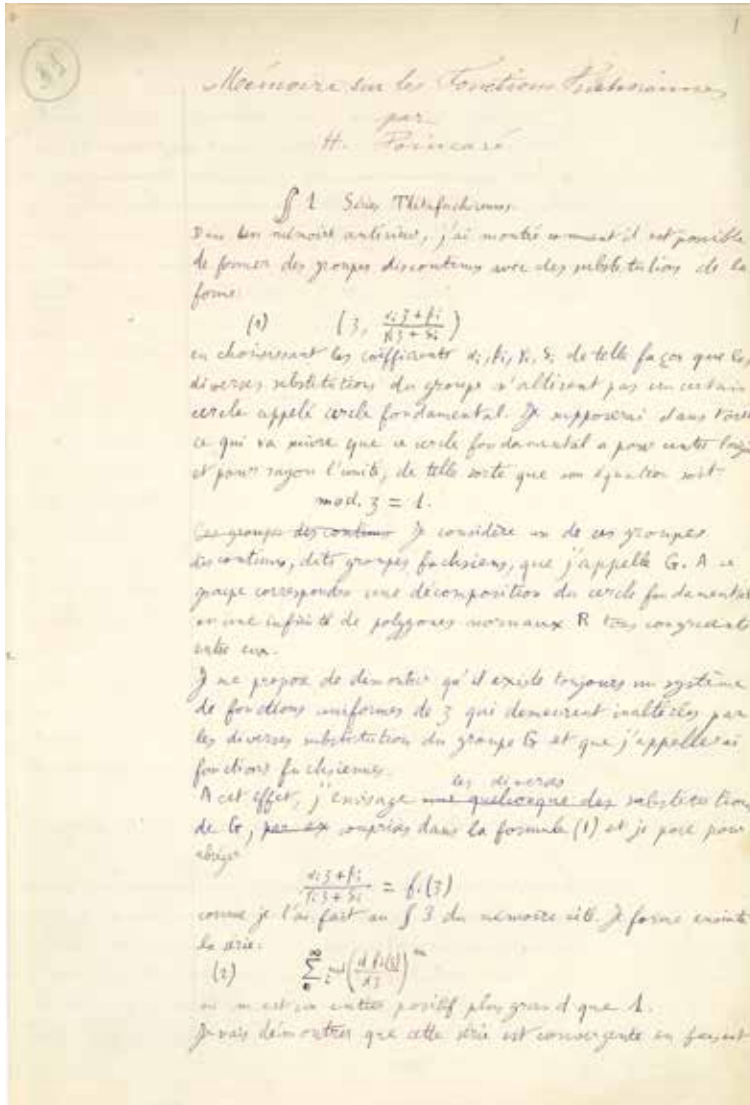 1
Mémoire sur les Fonctions Fuchsiennes
par
H. Poincaré
§ 1 Séries Thétafuchsiennes
Dans un mémoire antérieur, j'ai montré comment il est possible
de former des groupes discontinus avec des substitutions de la
forme:
(1) (z, αi z + βi / γi z + δi)
en choisissant les coëfficients αi, βi, γi, δi de telle façon que les
diverses substitutions du groupe n'altèrent pas un certain
cercle appelé cercle fondamental. Je supposerai dans tout
ce qui va suivre que ce cercle fondamental a pour centre l'origi
et pour rayon l'unité, de telle sorte que son équation soit:
mod. z = 1.
Ces groupes discontinus Je considère un de ces groupes
discontinus, dits groupes fuchsiens, que j'appelle G. A ce
groupe correspondra une décomposition du cercle fondamental
en une infinité de polygones normaux R tous congruents
entre eux.
Je me propose de démontrer qu'il existe toujours un système
de fonctions uniformes de z qui demeurent inaltérées par
les diverses substitution du groupe G et que j'appellerai
fonctions fuchsiennes.
les diverses
A cet effet, j'envisage une quelconque des substitutions
de G, par ex comprises dans la formule (1) et je pose pour
abréger
αi z + βi / γi z + δi = fi(z)
comme je l'ai fait au § 3 du mémoire cité. Je forme ensuite
la série:
(2) ∑ (d fi(z) / dz)^m
où m est un entier positif plus grand que 1.
Je vais démontrer que cette série est convergente en faisant